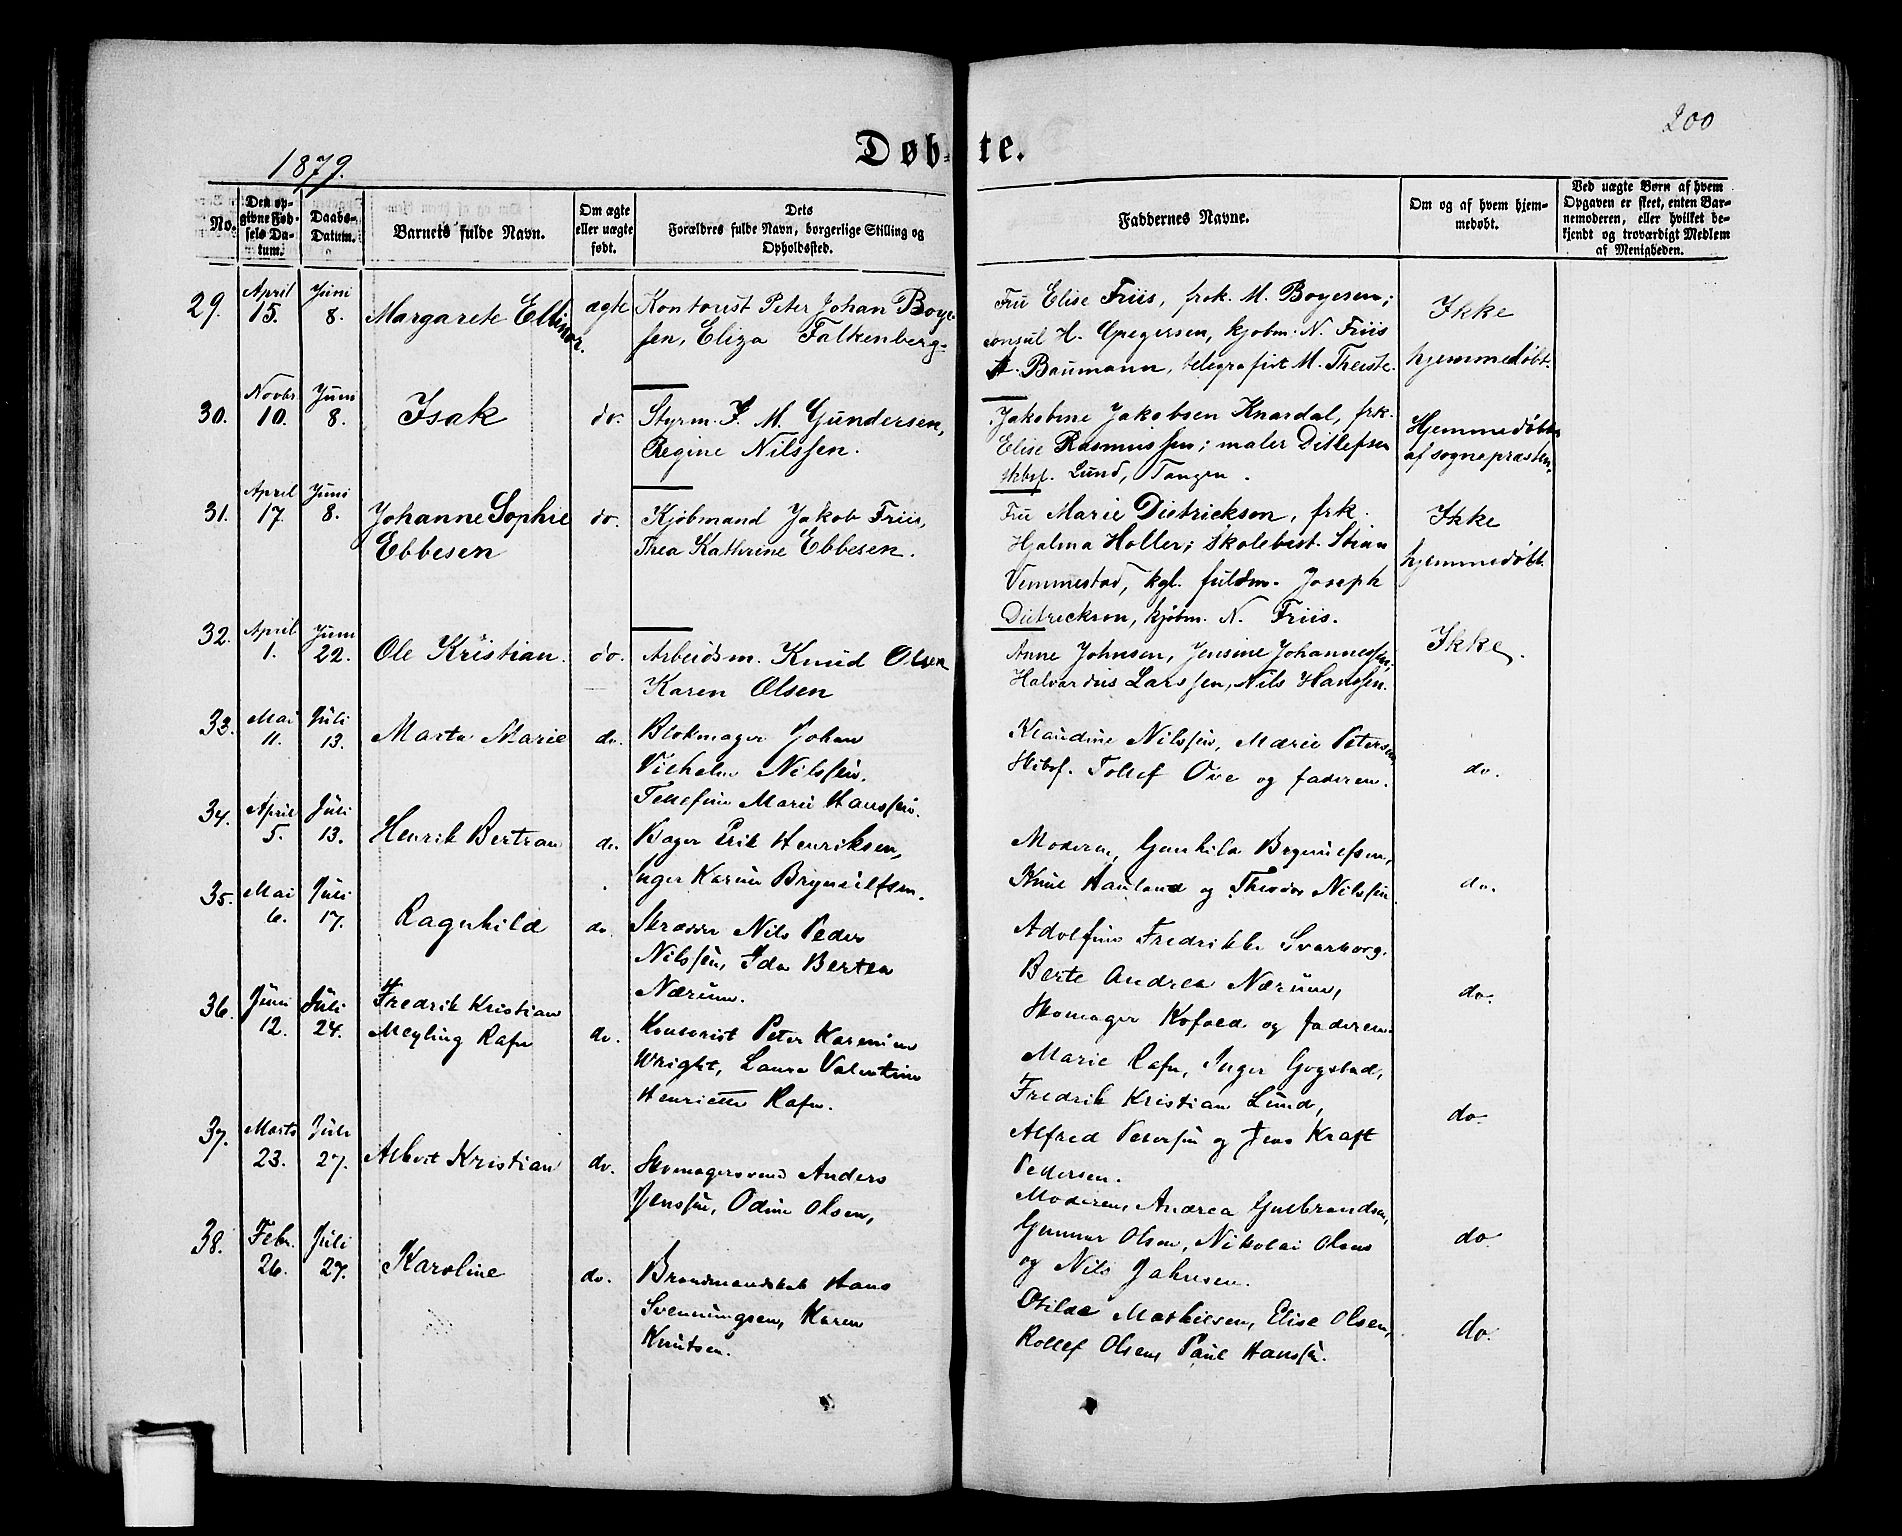 200
Døb-te.
1879.
No.
Den op-
givne Fød-
sels Da-
tum.
Daabs-
Datum.
Barnets fulde Navn.
Om ægte
eller uægte
født.
Dets
Forældres fulde Navn, borgerlige Stilling og
Opholdssted.
Faddernes Navne.
Om og af hvem hjem-
medøbt.
Ved uægte Børn af hvem
Opgaven er skeet, enten Bar-
nemoderen, eller hvilket be-
kjendt og troværdigt Medlem
af Menigheden.
29. April 15. Juni 8. Margarete Ellinor. ægte Kontorist Peter Johan Boye-
sen, Eliza Falkenberg.
Fru Elise Friis, frk. M. Boyesen;
consul H. Gregersen, kjøbm. N. Friis
A. Baumann, telegrafist M. Theiste.
Ikke
hjemmedøbt.
30. Novbr 10. Juni 8. Isak do. Styrm. I. M. Gundersen,
Regine Nilssen.
Jakobine Jakobsen Knardal, frk.
Elise Rasmussen; maler Ditlefsen
skbsf. Lund, Tangen.
Hjemmedøbt
af sognepræsten.
31. April 17. Juni 8. Johanne Sophie
Ebbesen do. Kjøbmand Jakob Friis,
Thea Kathrine Ebbesen.
Fru Marie Dietrickson, frk.
Hjalma Holler; skolebest. Stian
Vemmestad, kgl. fuldm. Joseph
Dietrickson, kjøbm. N. Friis.
Ikke
hjemmedøbt.
32. April 1. Juni 22. Ole Kristian. do. Arbeidsm. Knud Olsen
Karen Olsen
Anne Johnsen, Jensine Johannessen,
Halvardus Larssen, Nils Hanssen.
Ikke.
33. Mai 11. Juli 13. Marta Marie do. Blokmager Johan
Vilhelm Nilssen.
Tellefine Marie Hanssen.
Klaudine Nilssen, Marie Petersen
Skibsf. Tollef Ove og faderen.
do.
34. April 5. Juli 13. Henrik Bertran do. Bager Erik Henriksen,
Inger Karine Brynildsen.
Moderen, Gunhild Brynildsen,
Knut Hauland og Theodor Nilssen
do.
35. Mai 6. Juli 17. Ragnhild do. Skrædder Nils Peder
Nilssen, Ida Bertea
Nærum.
Adolfine Fredrikke Svarborg.
Berte Andrea Nærum,
Skomager Kofoed og faderen.
do.
36. Juni 12. Juli 24. Fredrik Kristian
Meyling Rafn do. Kontorist Peter Karenius
Wright, Laura Valentine
Henriette Rafn.
Marie Rafn, Inger Gogstad,
Fredrik Kristian Lund,
Alfred Petersen og Jens Kraft
Pedersen.
do.
37. Marts 23. Juli 27. Albert Kristian do. Skomagersvend Anders
Jenssen, Odine Olsen,
Moderen, Andrea Gulbrandsen,
Gunnar Olsen, Nikolai Olsen
og Nils Jahnsen.
do.
38. Febr. 26. Juli 27. Karoline do. Brandmandskab Hans
Svenningsen, Karen
Knutsen.
Otilde Mathisen, Elise Olsen,
Rollef Olsen, Paul Hanssen.
do.